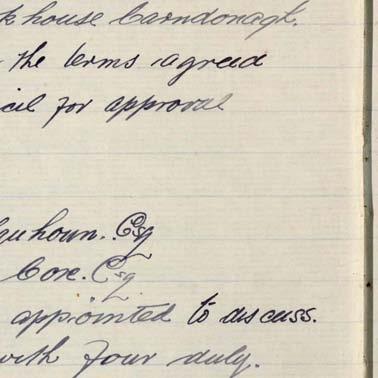 k house Carndonagh.
the terms agreed
cil for approval
quhoun. Esq
Coxe. Esq
appointed to discuss.
with four duly.